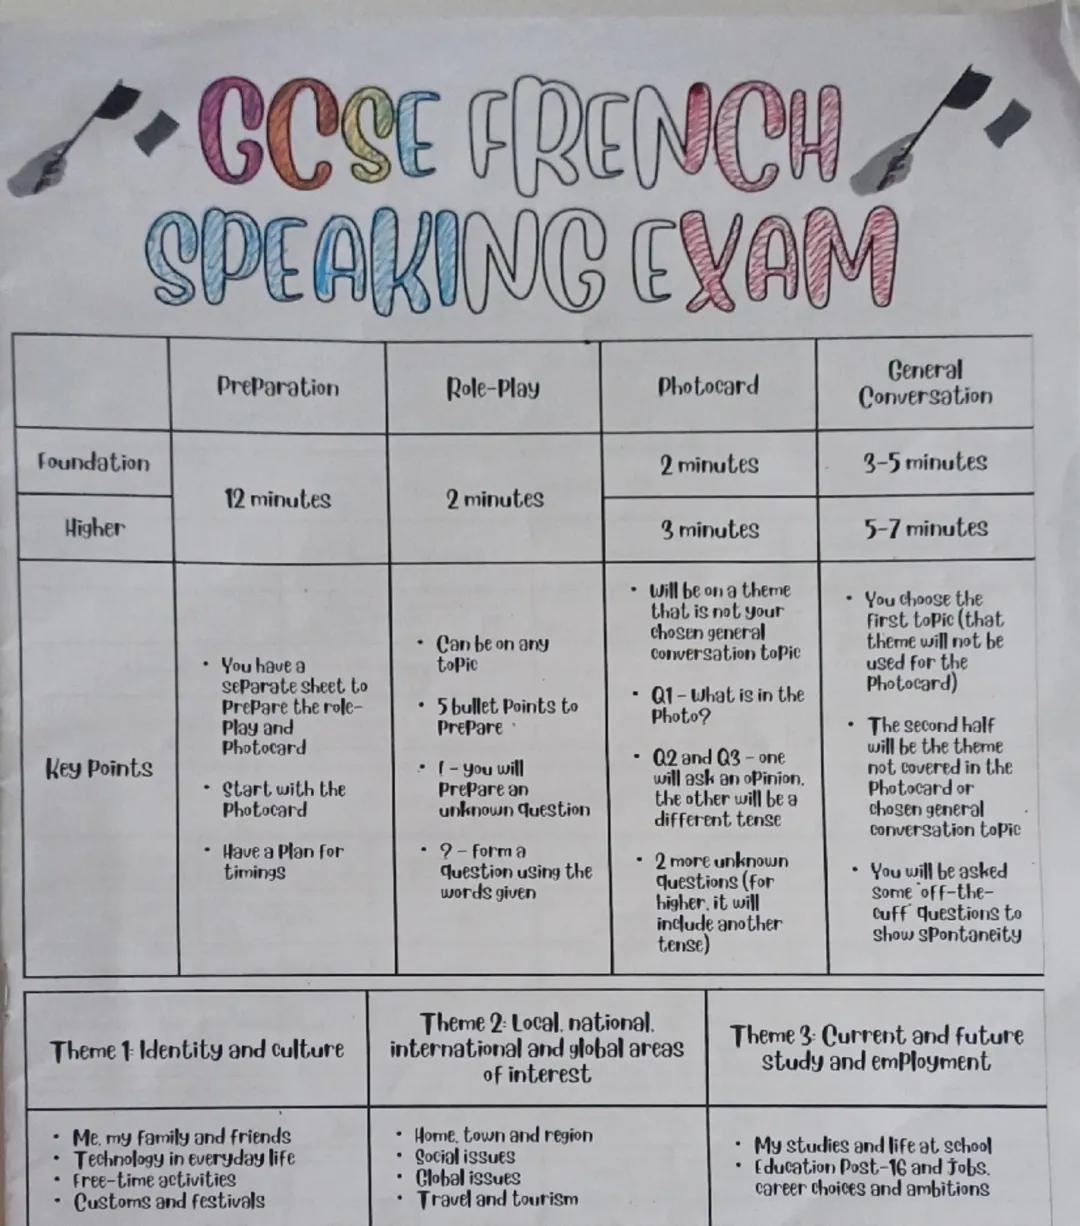 GCSE FRENCH
SPEAKING EXAM
Preparation
Role-Play
Photocard
General
Conversation
Foundation
12 minutes
2 minutes
2 minutes
3-5 minutes
Higher
3 minutes
5-7 minutes
Key Points
• You have a
separate sheet to
prepare the role-
play and
photocard
• Start with the
photocard
• Have a plan for
timings
• Can be on any
topic
• 5 bullet points to
prepare
• ! - you will
prepare an
unknown question
• ? - form a
question using the
words given
• Will be on a theme
that is not your
chosen general
conversation topic
• Q1 - What is in the
photo?
• Q2 and Q3 - one
will ask an opinion,
the other will be a
different tense
• 2 more unknown
questions (for
higher, it will
include another
tense)
• You choose the
first topic (that
theme will not be
used for the
photocard)
• The second half
will be the theme
not covered in the
photocard or
chosen general
conversation topic
• You will be asked
some 'off-the-
cuff' questions to
show spontaneity
Theme 1: Identity and culture
• Me, my family and friends
• Technology in everyday life
• Free-time activities
• Customs and festivals
Theme 2: Local, national,
international and global areas
of interest
• Home, town and region
• Social issues
• Global issues
• Travel and tourism
Theme 3: Current and future
study and employment
• My studies and life at school
• Education Post-16 and jobs,
career choices and ambitions